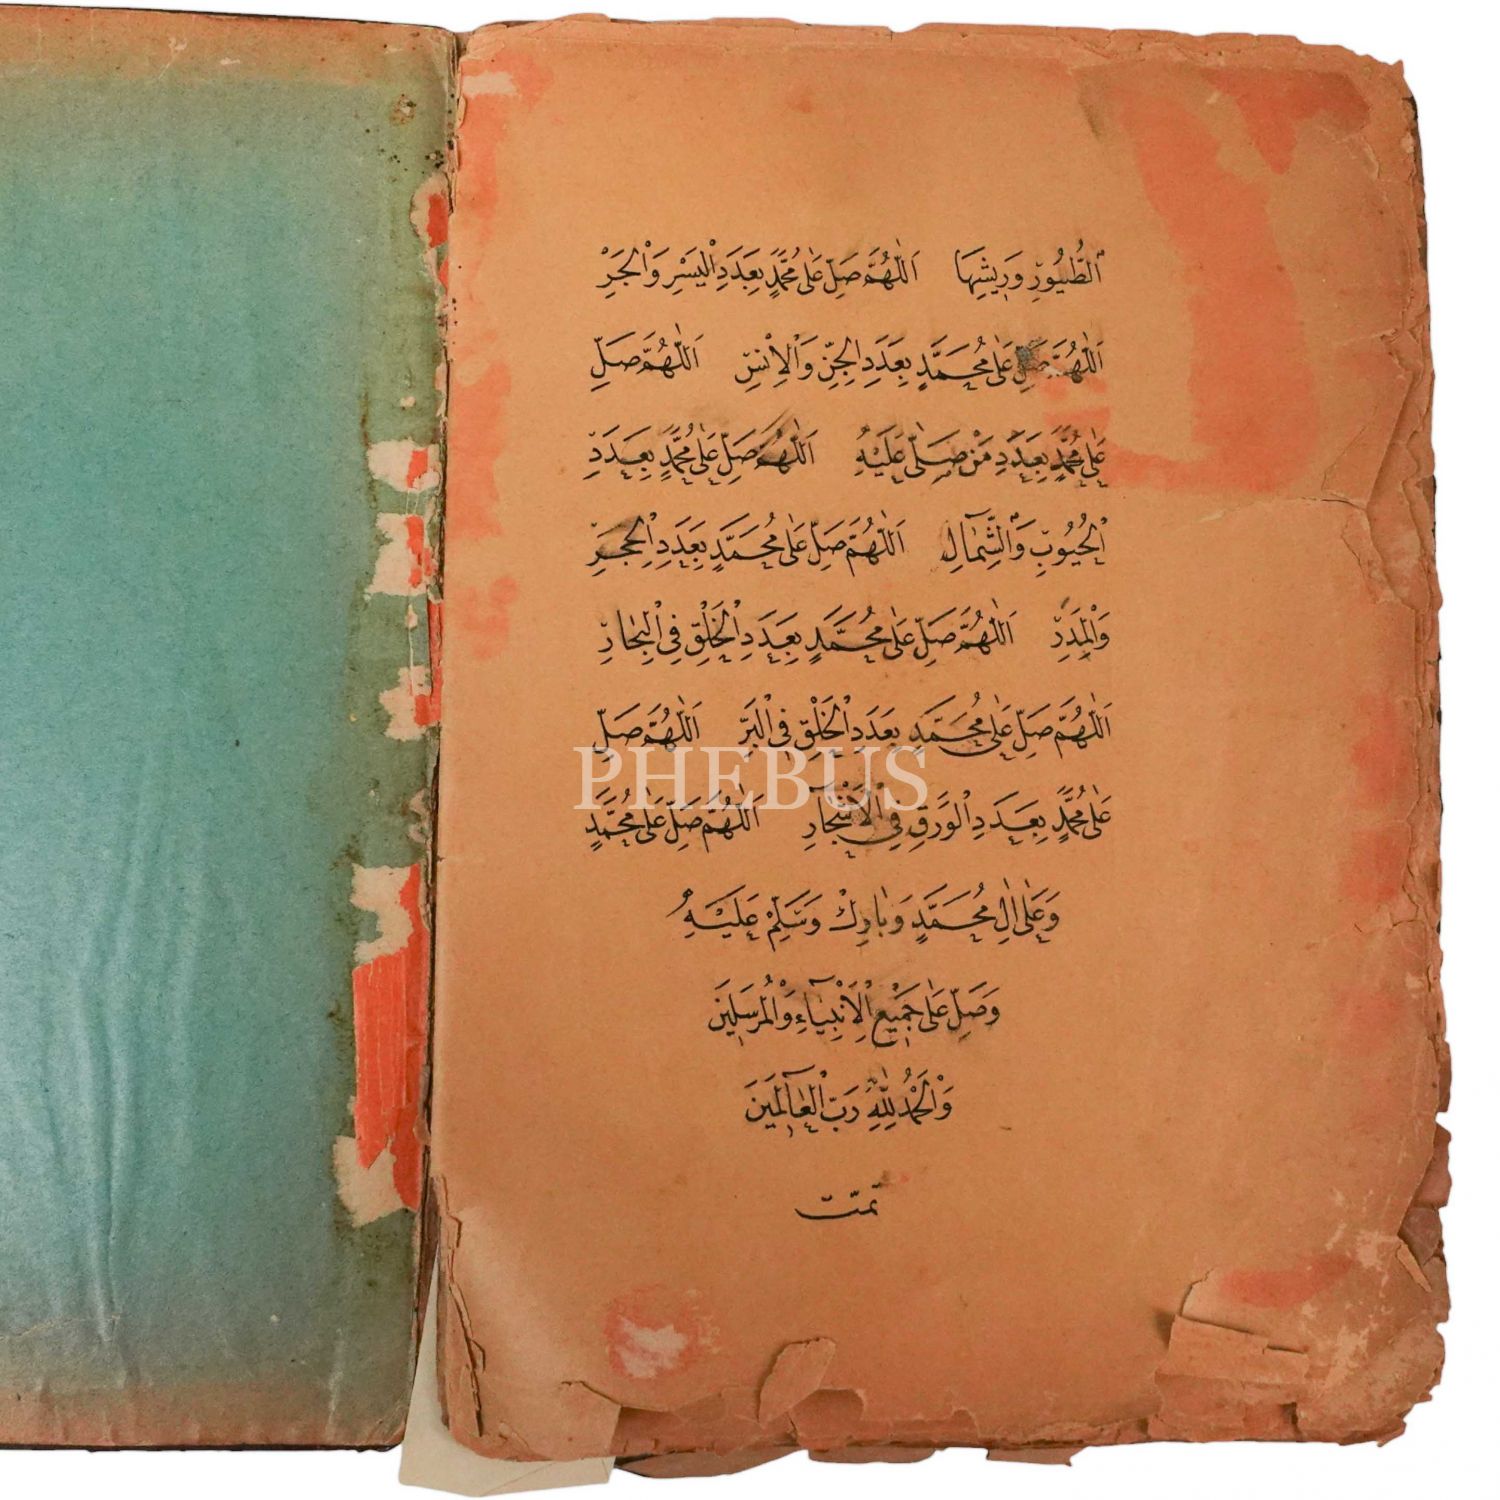 اَلطُّيُورِ وَرِيشِهَا اَللّٰهُمَّ صَلِّ عَلٰى مُحَمَّدٍ بِعَدَدِ الْيَسْرِ وَالْجَرْ
اَللّٰهُمَّ صَلِّ عَلٰى مُحَمَّدٍ بِعَدَدِ الْجِنِّ وَالْاِنْسِ اَللّٰهُمَّ صَلِّ
عَلٰى مُحَمَّدٍ بِعَدَدِ مَنْ صَلّٰى عَلَيْهِ اَللّٰهُمَّ صَلِّ عَلٰى مُحَمَّدٍ بِعَدَدِ
الْجُيُوبِ وَالشِّمَالِ اَللّٰهُمَّ صَلِّ عَلٰى مُحَمَّدٍ بِعَدَدِ الْحَجَرِ
وَالْمَدَدِ اَللّٰهُمَّ صَلِّ عَلٰى مُحَمَّدٍ بِعَدَدِ الْخَلْقِ فِى الْبِحَارِ
اَللّٰهُمَّ صَلِّ عَلٰى مُحَمَّدٍ بِعَدَدِ الْخَلْقِ فِى الْبَرِّ اَللّٰهُمَّ صَلِّ
PHEBUS
عَلٰى مُحَمَّدٍ بِعَدَدِ الْوَرَقِ فِى الْاَشْجَارِ اَللّٰهُمَّ صَلِّ عَلٰى مُحَمَّدٍ
وَعَلٰى اٰلِ مُحَمَّدٍ وَبَارِكْ وَسَلِّمْ عَلَيْهِ
وَصَلِّ عَلٰى جَمِيْعِ الْاَنْبِيَآءِ وَالْمُرْسَلِيْنَ
وَالْحَمْدُ لِلّٰهِ رَبِّ الْعَالَمِيْنَ
تمت